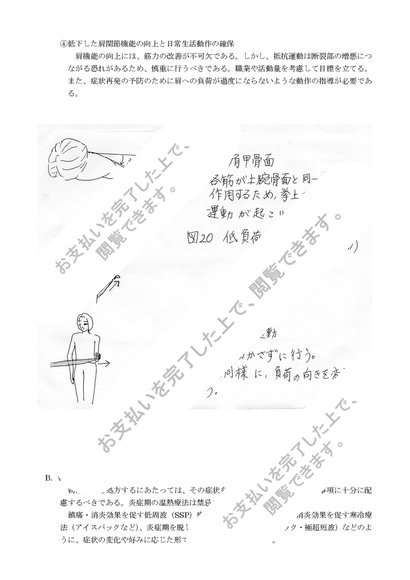 ④低下した肩関節機能の向上と日常生活動作の確保
肩機能の向上には、筋力の改善が不可欠である。しかし、抵抗運動は断裂部の増悪につ
ながる恐れがあるため、慎重に行うべきである。職業や活動量を考慮して目標を立てる。
また、症状再発の予防のために肩への負荷が過度にならないような動作の指導が必要であ
る。
お支払いを完了した上で、
閲覧できます。
肩甲骨面
各筋が上腕骨面と同一
作用するため、挙上
運動が起こ
図20 低負荷
お支払いを完了した上で、
閲覧できます。
動
かさずに行う。
同様に、負荷の向きを変
う。
お支払いを完了した上で、
閲覧できます。
B.
処方するにあたっては、その症状
項に十分に配
慮するべきである。炎症期の温熱療法は禁忌
鎮痛・消炎効果を促す低周波（SSP）
消炎効果を促す寒冷療
法（アイスパックなど）、炎症期を脱し
ック・極超短波）などのよ
うに、症状の変化や好みに応じた形で